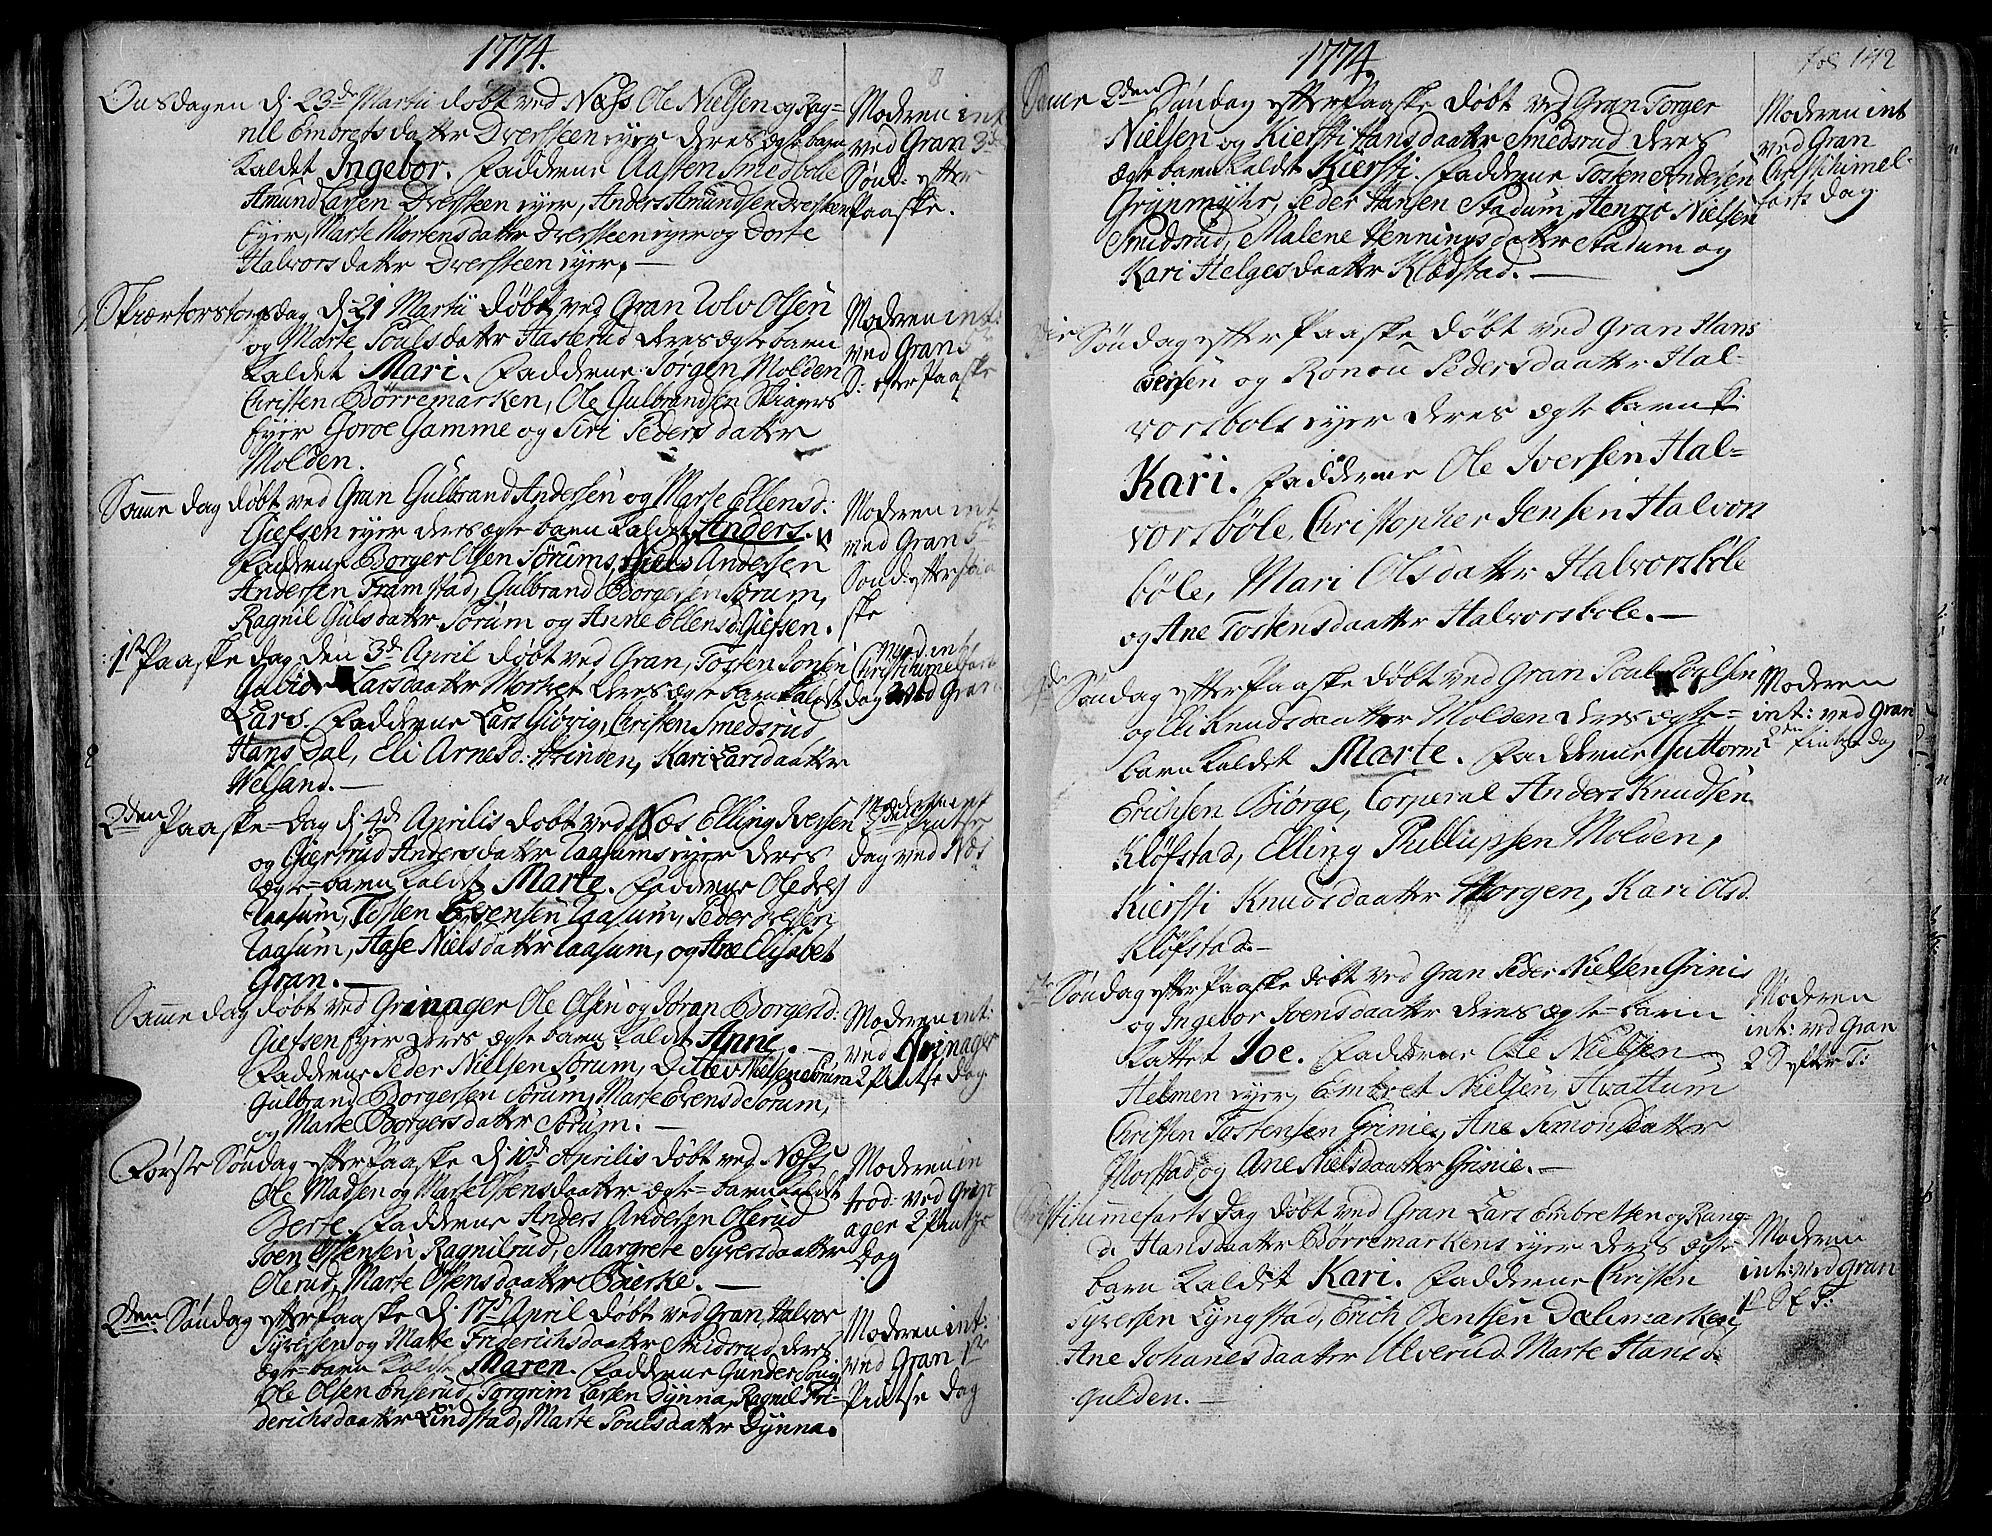 1774.
Onsdagen d: 23de Martii døbt ved Næss Ole Nielsen og Rag=
nil Embretsdatter Dversteen eyer deres ægte barn
kaldet Ingebor. Fadderne Aasten Smedbøle
Amund Larsen Dversteen eyer, Anders Amundsen Dversteen
Eyer, Marte Mortensdatter Dversteen eyer og Dorte
Halvorsdatter Dversteen eyer. —
Moderen int
ved Gran 3de
Sønd: efter
Paaske.
Skiærtorstorsdag d: 21 Martii døbt ved Gran Tolv Olsen
og Marte Poulsdatter Hasærud deres ægte barn
kaldet Mari. Fadderne Jørgen Molden
Christen Børremarken, Ole Gulbrandsen Skiagers
Eyer Goroe Gamme og Siri Pedersdatter
Molden.
Moderen int:
ved Gran 5
S: efter Paaske
Samme dag døbt ved Gran Gulbrand Andersen og Marte Ellensd:
Giefsen eyer deres ægte barn kaldet Anders.
Fadderne Borger Olsen Sørum, Niels Andersen
Andersen Framstad, Gulbrand Borgersen Sørum,
Ragnil Gulsdatter Sørum og Anne Ellensd: Giefsen.
Moderen int
ved Gran 5
Sønd: efter Paa
ske
1ste Paaske dag den 3de April døbt ved Gran, Tosten Jonsen
Gubiør Larsdaatter Morket deres ægte barn kaldet
Lars. Fadderne Lars Giövig, Christen Smedsrud
Hans Dal, Eli Arnesd: Hvinden, Kari Larsdaatter
Welsand. —
Mod. int
Christihimelfarts
dag ved Gran
2den Paaske-Dag d: 4de Aprilis døbt ved Næs Elling Iversen
og Giertrud Andersdatter Laasums eyer deres
Ægte=barn kaldet Marte. Fadderne Ole Dres
Laasum, Tosten Evensen Laasum, Peder Iversen
Laasum, Aase Nielsdatter Laasum, og Ane Elisabet
Gran. —
Moderen int
2den Pintse
dag ved Næs
Samme dag døbt ved Grinager Ole Olsen og Søran Borgersd:
Giefsen Eyer deres ægte barn kaldet Anne. —
Fadderne Peder Nielsen Sørum, Ditlev Nielsen Sørum
Gulbrand Borgersen Sørum, Marte Evensd Sørum,
og Marte Borgersdatter Sørum. —
Moderen int:
ved Grinager
2 Pintse Dag
Første Søndag efter Paaske d: 10de Aprilis døbt ved Næss
Ole Madsen og Marte Ostensdaatter ægte=barn kaldet
Berte. Fadderne Anders Andersen Olerud
Joen Ostensen Ragnilrud, Margrete Syversdaatter
Olerud, Marte Ostensdaatter Bierke. —
Moderen in
trod: ved Grin
ager 2 Pintse
Dag
2den Søndag efter Paaske d: 17de April døbt ved Gran, Halvor
Syversen og Matte Friderichsdaatter Skidsrud, deres
ægte=barn kaldet Maren. Fadderne Gunder
Ole Olsen Enserud, Torgrim Larsen Dynna, Ragnil Fri=
derichsdaatter Lindstad, Marte Poulsdaatter Dynna.
Moderen int:
ved Gran 1ste
Pintse Dag
1774.
fol 142
Samme 2den Søndag efter Paaske døbt ved Gran Torger
Nielsen og Kiersti Hansdaatter Smedsrud deres
ægte barn kaldet Kiersti. Fadderne Tosten Andersen
Grünmyhr, Peder Hansen Stadum, Henric Nielsen
Smidsrud, Malene Henningsdatter Stadum og
Kari Helgesdaatter Klæstad. —
Moderen int
ved Gran
Christihimel-
farts dag
Søndag efter Paaske døbt ved Gran Hans
Iversen og Ronou Pedersdaatter Hal=
vorsbøls eyer deres ægte barn k:
Kari. Fadderne Ole Iversen Hal=
vorsbøle, Christopher Jensen Halvors
bøle, Mari Olsdatter Halvorsbøle
og Ane Tostensdaatter Halvorsbole. —
4de Søndag efter Paaske døbt ved Gran Poul Poulsen
og Eli Knudsdaatter Molden deres ægte=
barn kaldet Marte. Fadderne Guttorm
Erichsen Biørge, Corperal Anders Knudsen
Kløfstad, Elling Phillupsen Molden,
Kiersti Knudsdaatter Horgen, Kari Olsd.
Kløfstad. —
Moderen
int: ved Gran
2den Pintse dag
5te Søndag efter Paaske døbt ved Gran Peder Nielsen Grinis
og Ingebor Joensdaatter deres ægte=barn
Kallet Joe. Fadderne Ole Nielsen
Helmen eyer, Embret Nielsen, Hvattum
Christen Tostensen Grinie, Ane Simonsdatter
Morstad og Ane Nielsdaatter Grinie. —
Moderen
int: ved Gran
2 S efter T:
Christihimmelfarts dag døbt ved Gran Lars Embretsen og Rang=
d: Hansdaatter Børremarkens eyer deres ægte
barn kaldet Kari. Fadderne Christen
Syversen Lyngstad, Erich Bentsen Dalemarken,
Ane Johanesdaatter Ulverud, Marte Hansd:
Gulden. —
Moderen
int: ved Gran
1ste S E T: